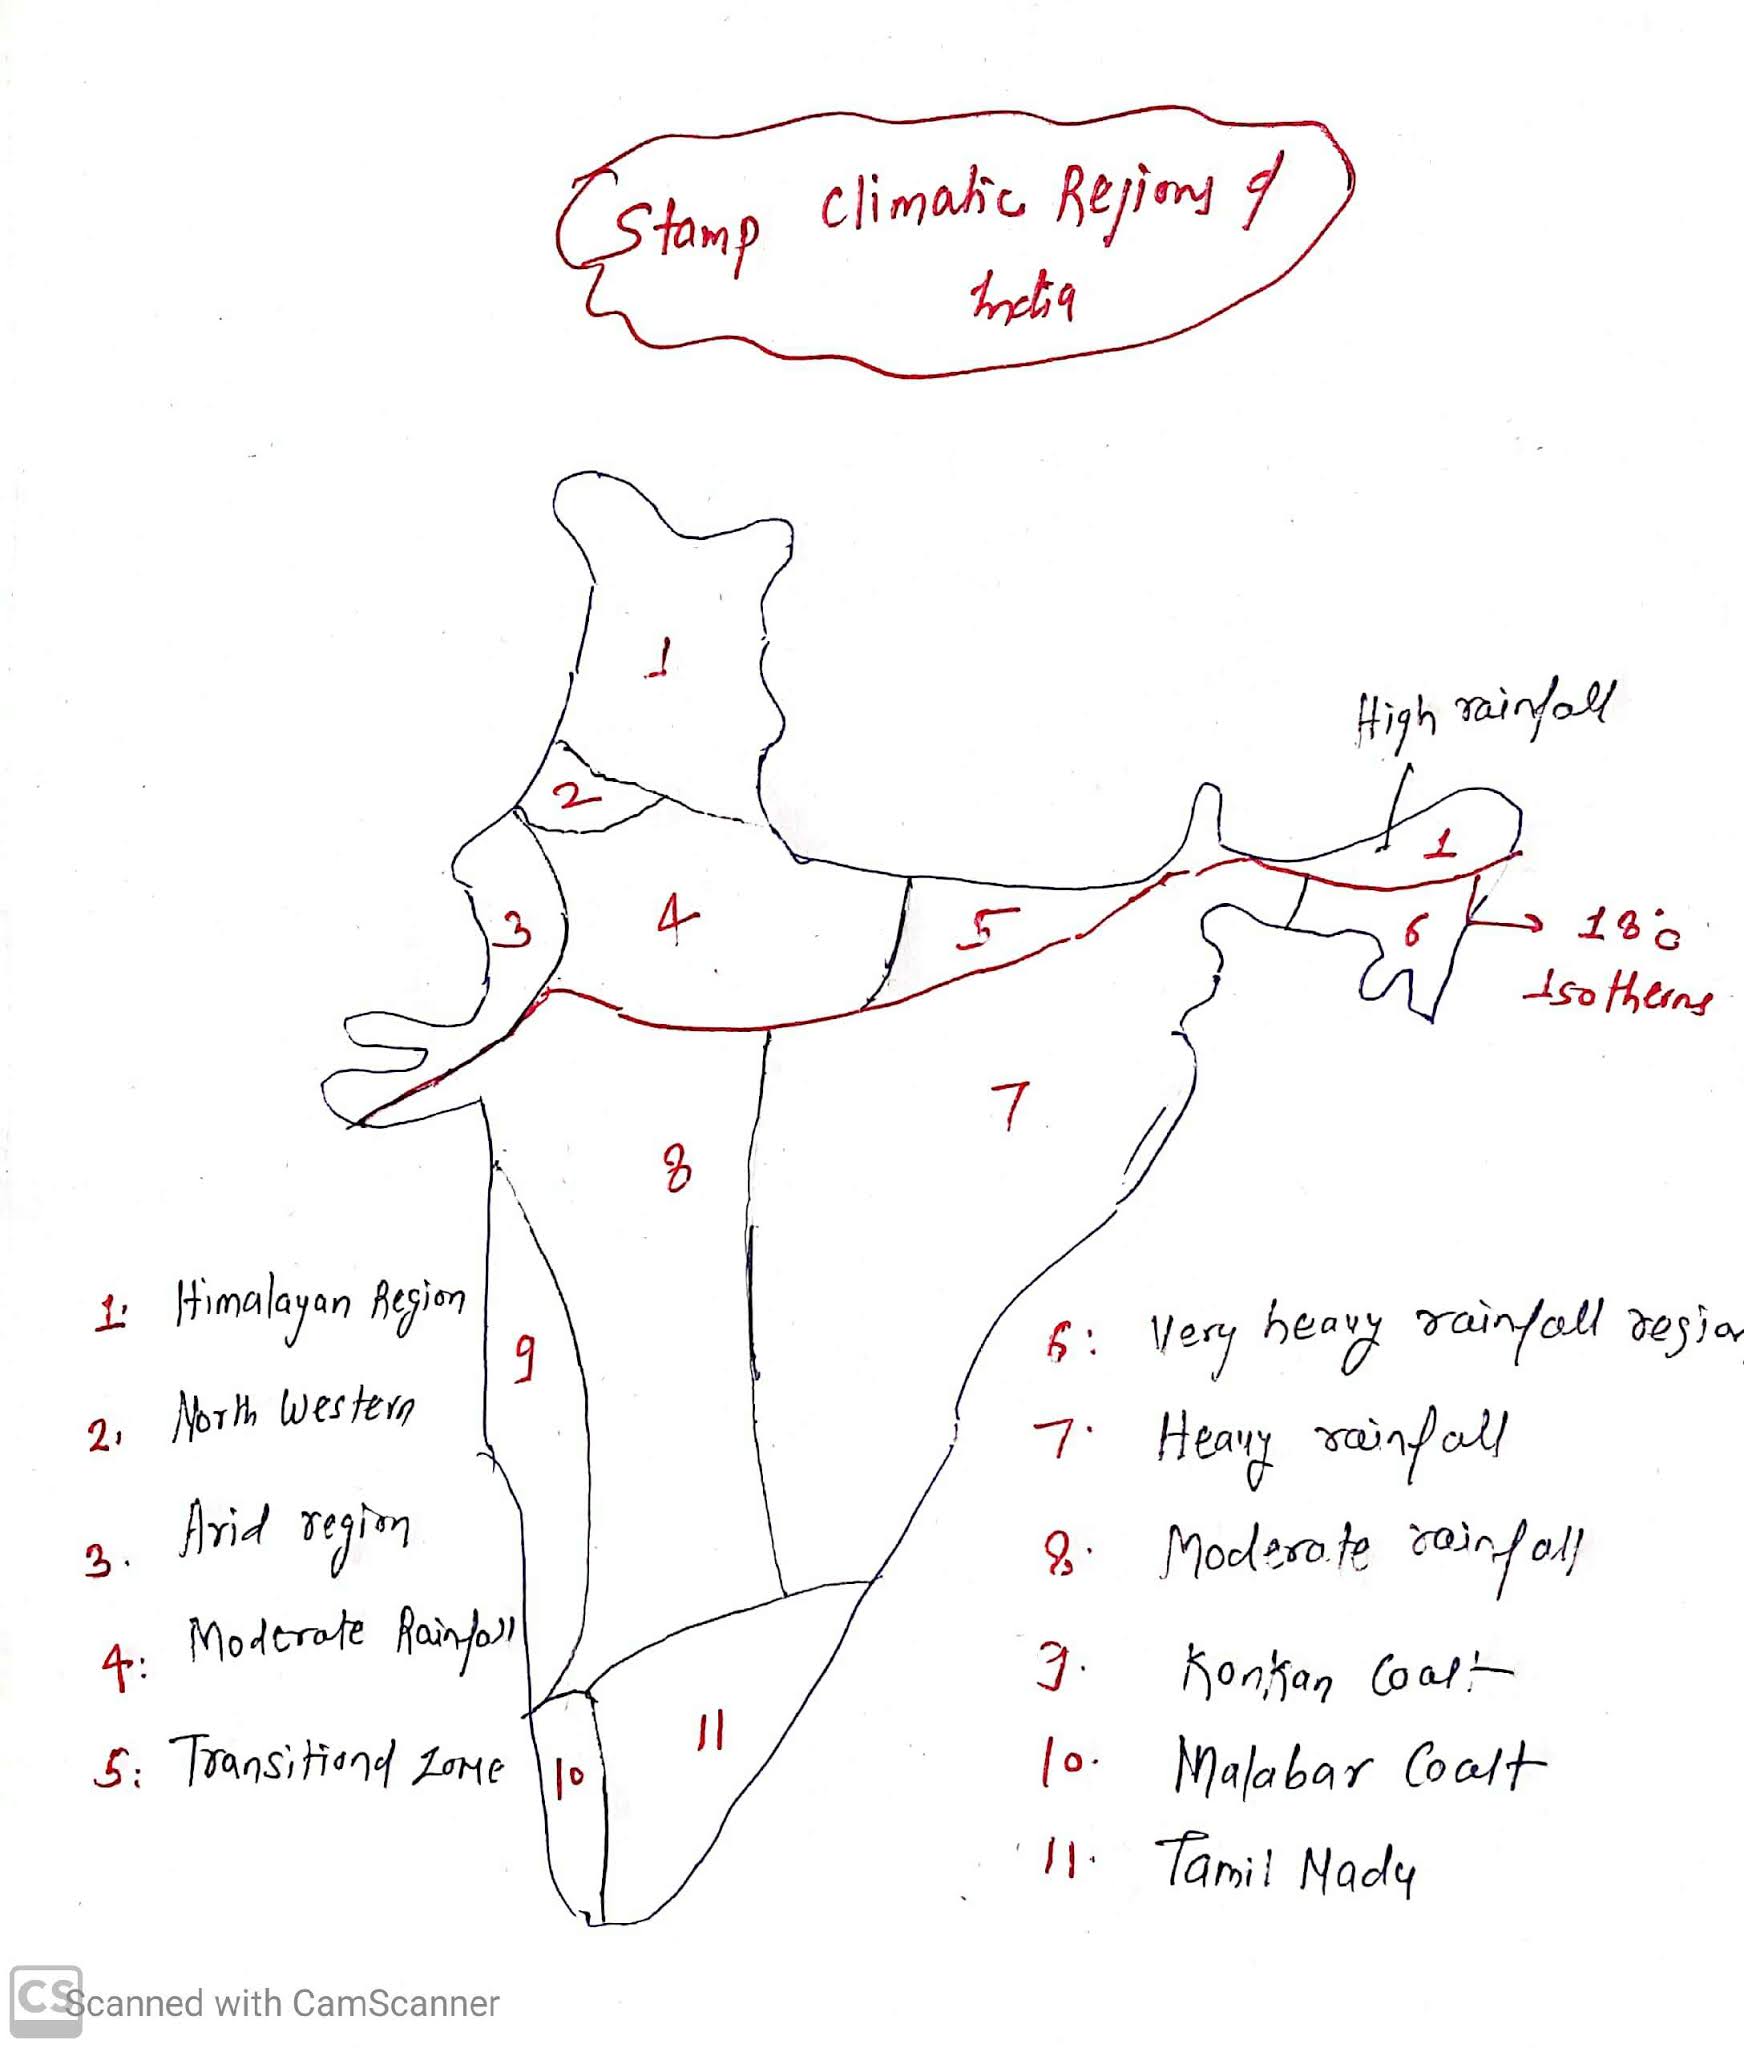 Stamp Climatic Regions of
India
1
High rainfall
2
1
3
4
5
6
18°c
Isotherms
7
8
1. Himalayan Region
9
6: Very heavy rainfall region
2. North Western
7. Heavy rainfall
3. Arid region
8. Moderate rainfall
4: Moderate Rainfall
9. Konkan Coast
11
5: Transitional zone
10
10. Malabar Coast
11. Tamil Nadu
CS Scanned with CamScanner